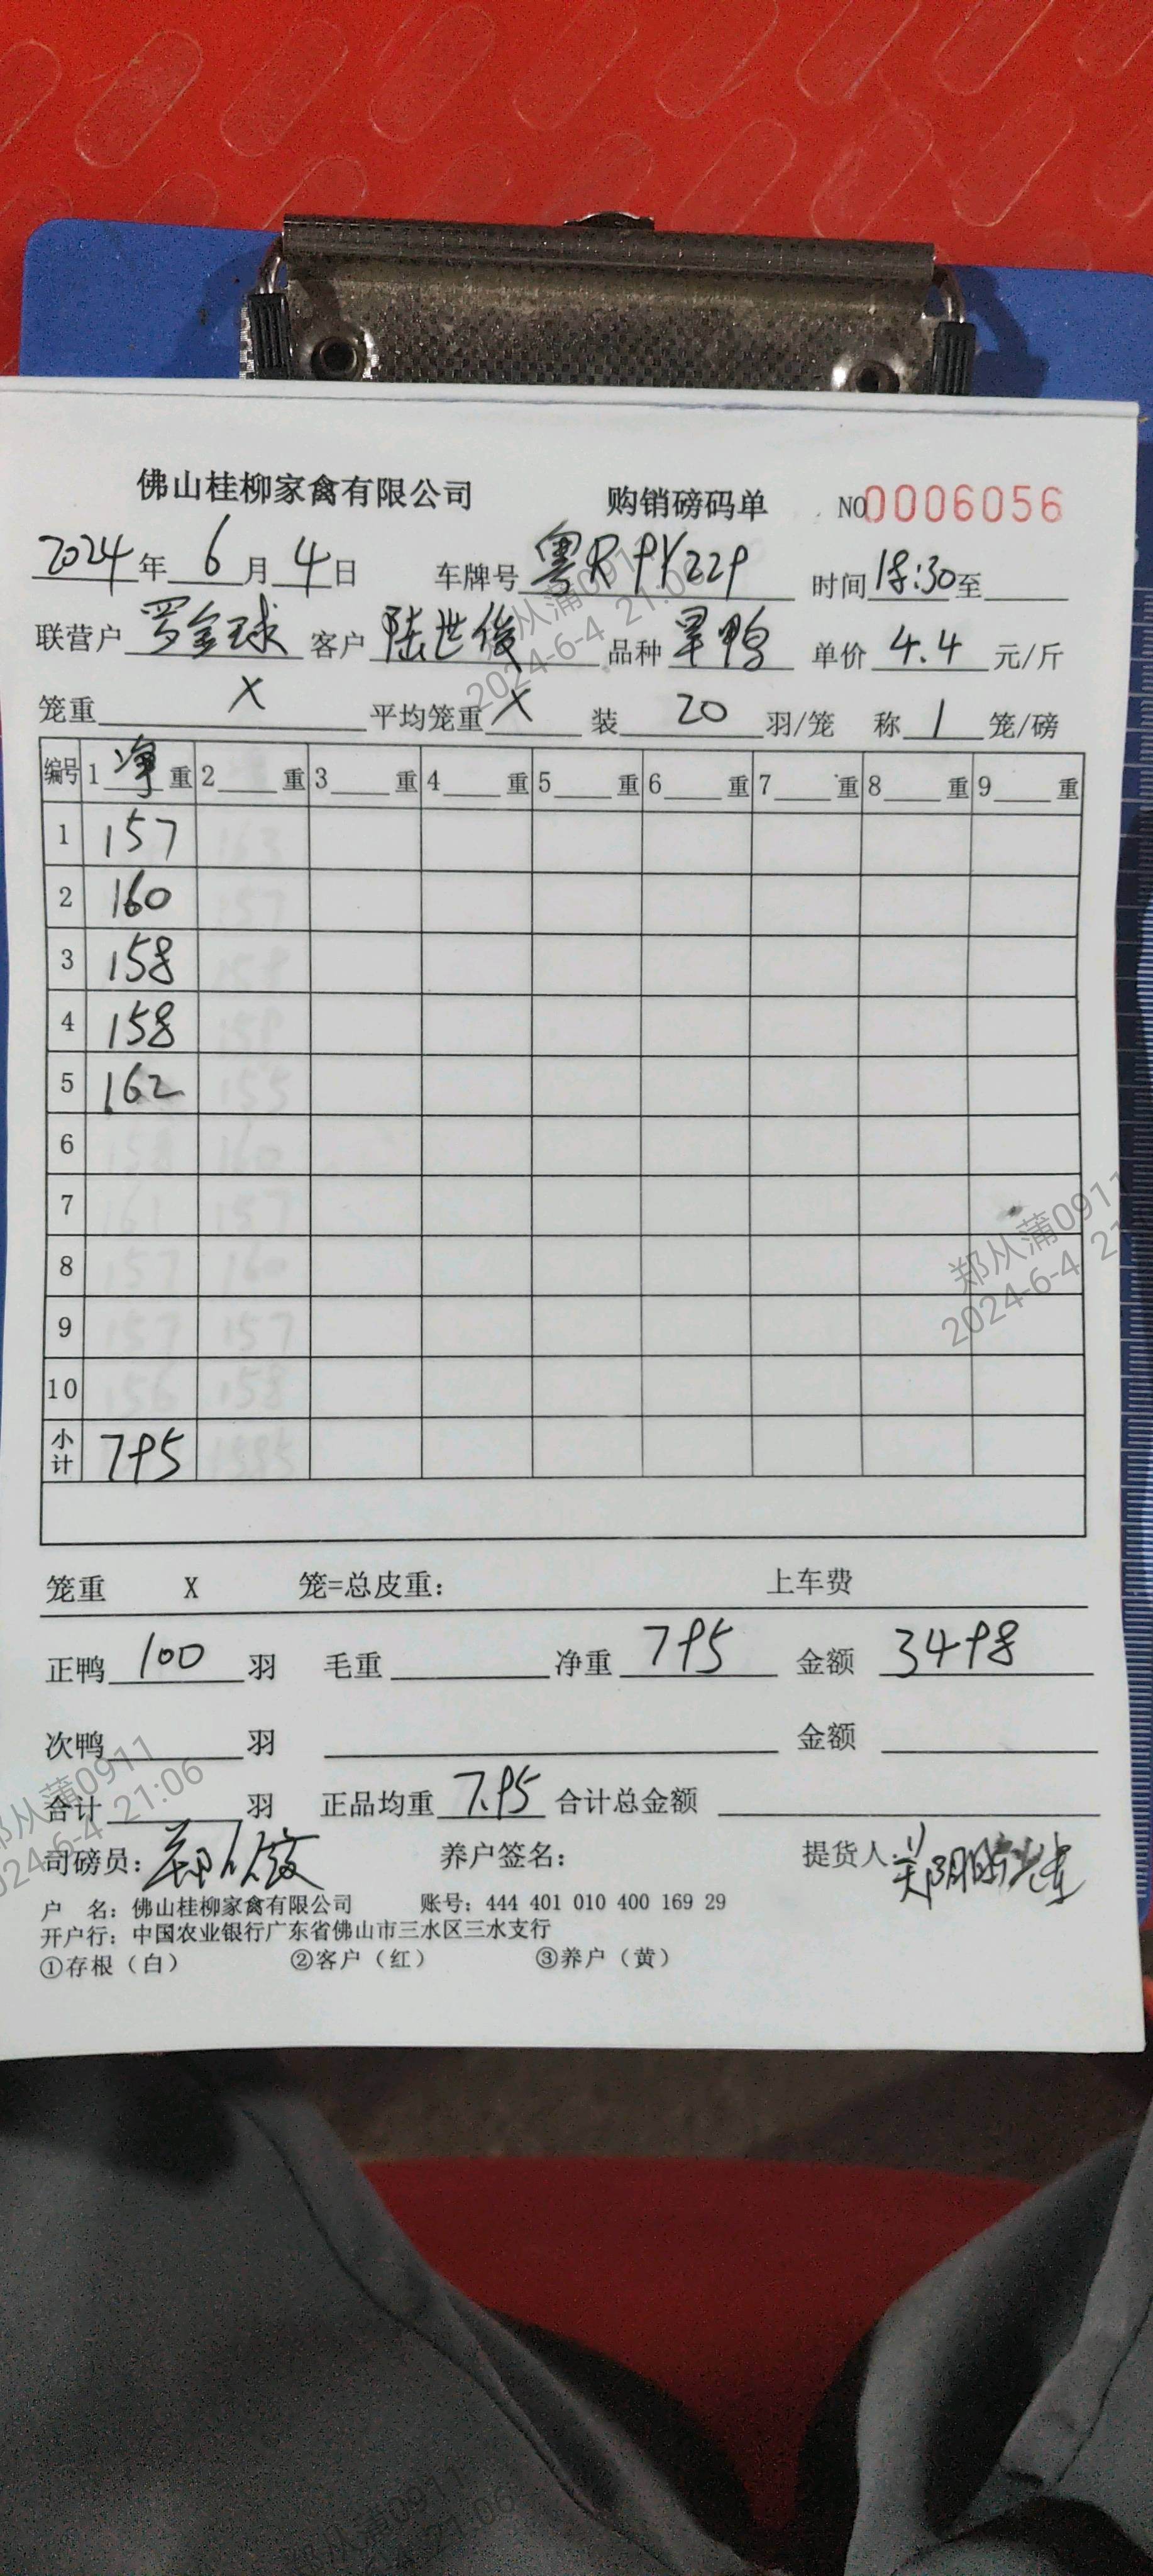 佛山桂柳家禽有限公司 购销磅码单 NO 0006056
2024年 6月 4日 车牌号 粤R9Y229 时间 18:30 至
联营户 罗金球 客户 陆世俊 品种 旱鸭 单价 4.4 元/斤
笼重 X 平均笼重 X 装 20 羽/笼 称 1 笼/磅
编号 1 净 重 2 重 3 重 4 重 5 重 6 重 7 重 8 重 9 重
1 157
2 160
3 158
4 158
5 162
6
7
8
9
10
小计 795
笼重 X 笼=总皮重: 上车费
正鸭 100 羽 毛重 净重 795 金额 3498
次鸭 羽 金额
合计 羽 正品均重 7.95 合计总金额
司磅员: 养户签名: 提货人:
户 名: 佛山桂柳家禽有限公司 账号: 444 401 010 400 169 29
开户行: 中国农业银行广东省佛山市三水区三水支行
①存根(白) ②客户(红) ③养户(黄)
郑从蒲0911
2024-6-4 21:06